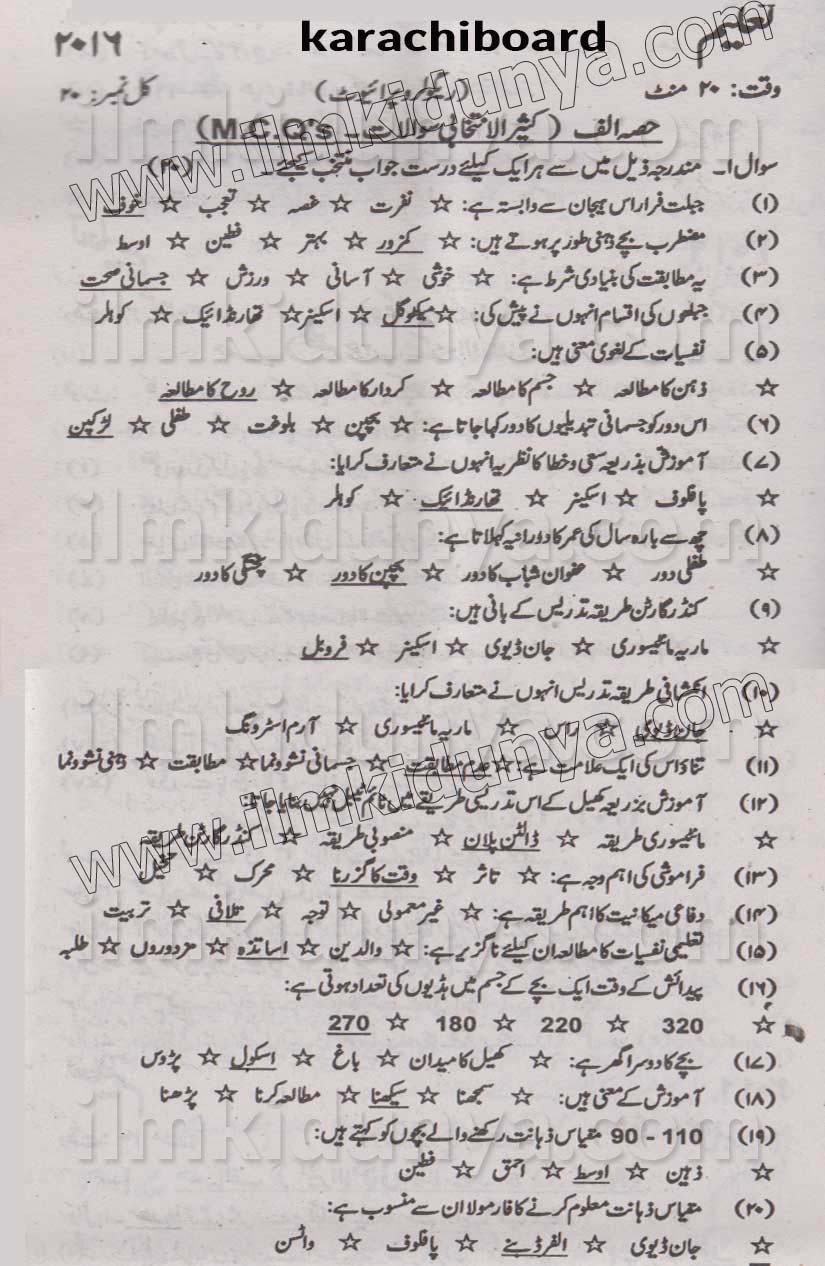 karachiboard
تعلیم
۲۰۱۶
وقت: ۲۰ منٹ (ریگولر و پرائیوٹ) کل نمبر: ۲۰
حصہ الف (کثیر الانتخابی سوالات - M.C.Q's)
سوال ۱۔ مندرجہ ذیل میں سے ہر ایک کیلئے درست جواب منتخب کیجئے۔ (۲۰)
(۱) جبلت فرار اس ہیجان سے وابستہ ہے: ☆ نفرت ☆ غصہ ☆ تعجب ☆ خوف
(۲) مضطرب بچے ذہنی طور پر ہوتے ہیں: ☆ کمزور ☆ بہتر ☆ فطین ☆ اوسط
(۳) یہ مطابقت کی بنیادی شرط ہے: ☆ خوشی ☆ آسانی ☆ ورزش ☆ جسمانی صحت
(۴) جبلتوں کی اقسام انہوں نے پیش کی: ☆ میکڈوگل ☆ اسکینر ☆ تھارنڈائیک ☆ کوہلر
(۵) نفسیات کے لغوی معنی ہیں:
☆ ذہن کا مطالعہ ☆ جسم کا مطالعہ ☆ کردار کا مطالعہ ☆ روح کا مطالعہ
(۶) اس دور کو جسمانی تبدیلیوں کا دور کہا جاتا ہے: ☆ بچپن ☆ بلوغت ☆ طفلی ☆ لڑکپن
(۷) آموزش بذریعہ سعی و خطا کا نظریہ انہوں نے متعارف کرایا:
☆ پافلوف ☆ اسکینر ☆ تھارنڈائیک ☆ کوہلر
(۸) چھ سے بارہ سال کی عمر کا دورانیہ کہلاتا ہے:
☆ طفلی دور ☆ عنوان شباب کا دور ☆ بچپن کا دور ☆ پختگی کا دور
(۹) کنڈر گارٹن طریقہ تدریس کے بانی ہیں:
☆ ماریہ مانٹیسوری ☆ جان ڈیوی ☆ اسکینر ☆ فروبل
(۱۰) انکشافی طریقہ تدریس انہوں نے متعارف کرایا:
☆ جان ڈیوی ☆ راس ☆ ماریہ مانٹیسوری ☆ آرم اسٹرونگ
(۱۱) تناؤ اس کی ایک علامت ہے: ☆ عدم مطابقت ☆ جسمانی نشوونما ☆ مطابقت ☆ ذہنی نشوونما
(۱۲) آموزش بذریعہ کھیل کے اس تدریسی طریقے میں ٹائم ٹیبل نہیں بنایا جاتا:
☆ مانٹیسوری طریقہ ☆ ڈالٹن پلان ☆ منصوبی طریقہ ☆ کنڈر گارٹن طریقہ
(۱۳) فراموشی کی اہم وجہ ہے: ☆ تاثر ☆ وقت کا گزرنا ☆ محرک ☆ تخیل
(۱۴) دفاعی میکانیت کا اہم طریقہ ہے: ☆ غیر معمولی ☆ توجہ ☆ تلافی ☆ تربیت
(۱۵) تعلیمی نفسیات کا مطالعہ ان کیلئے ناگزیر ہے: ☆ والدین ☆ اساتذہ ☆ مزدوروں ☆ طلبہ
(۱۶) پیدائش کے وقت ایک بچے کے جسم میں ہڈیوں کی تعداد ہوتی ہے:
☆ 320 ☆ 220 ☆ 180 ☆ 270
(۱۷) بچے کا دوسرا گھر ہے: ☆ کھیل کا میدان ☆ باغ ☆ اسکول ☆ پڑوس
(۱۸) آموزش کے معنی ہیں: ☆ سمجھنا ☆ سیکھنا ☆ مطالعہ کرنا ☆ پڑھنا
(۱۹) 90 - 110 مقیاس ذہانت رکھنے والے بچوں کو کہتے ہیں:
☆ ذہین ☆ اوسط ☆ احمق ☆ فطین
(۲۰) مقیاس ذہانت معلوم کرنے کا فارمولا ان سے منسوب ہے:
☆ جان ڈیوی ☆ الفرڈ بنے ☆ پافلوف ☆ واٹسن
www.ilmkidunya.com
www.ilmkidunya.com
ilmkidunya.com
ilmkidunya.com
ilmkidunya.com
ilmkidunya.com
ilmkidunya.com
ilmkidunya.com